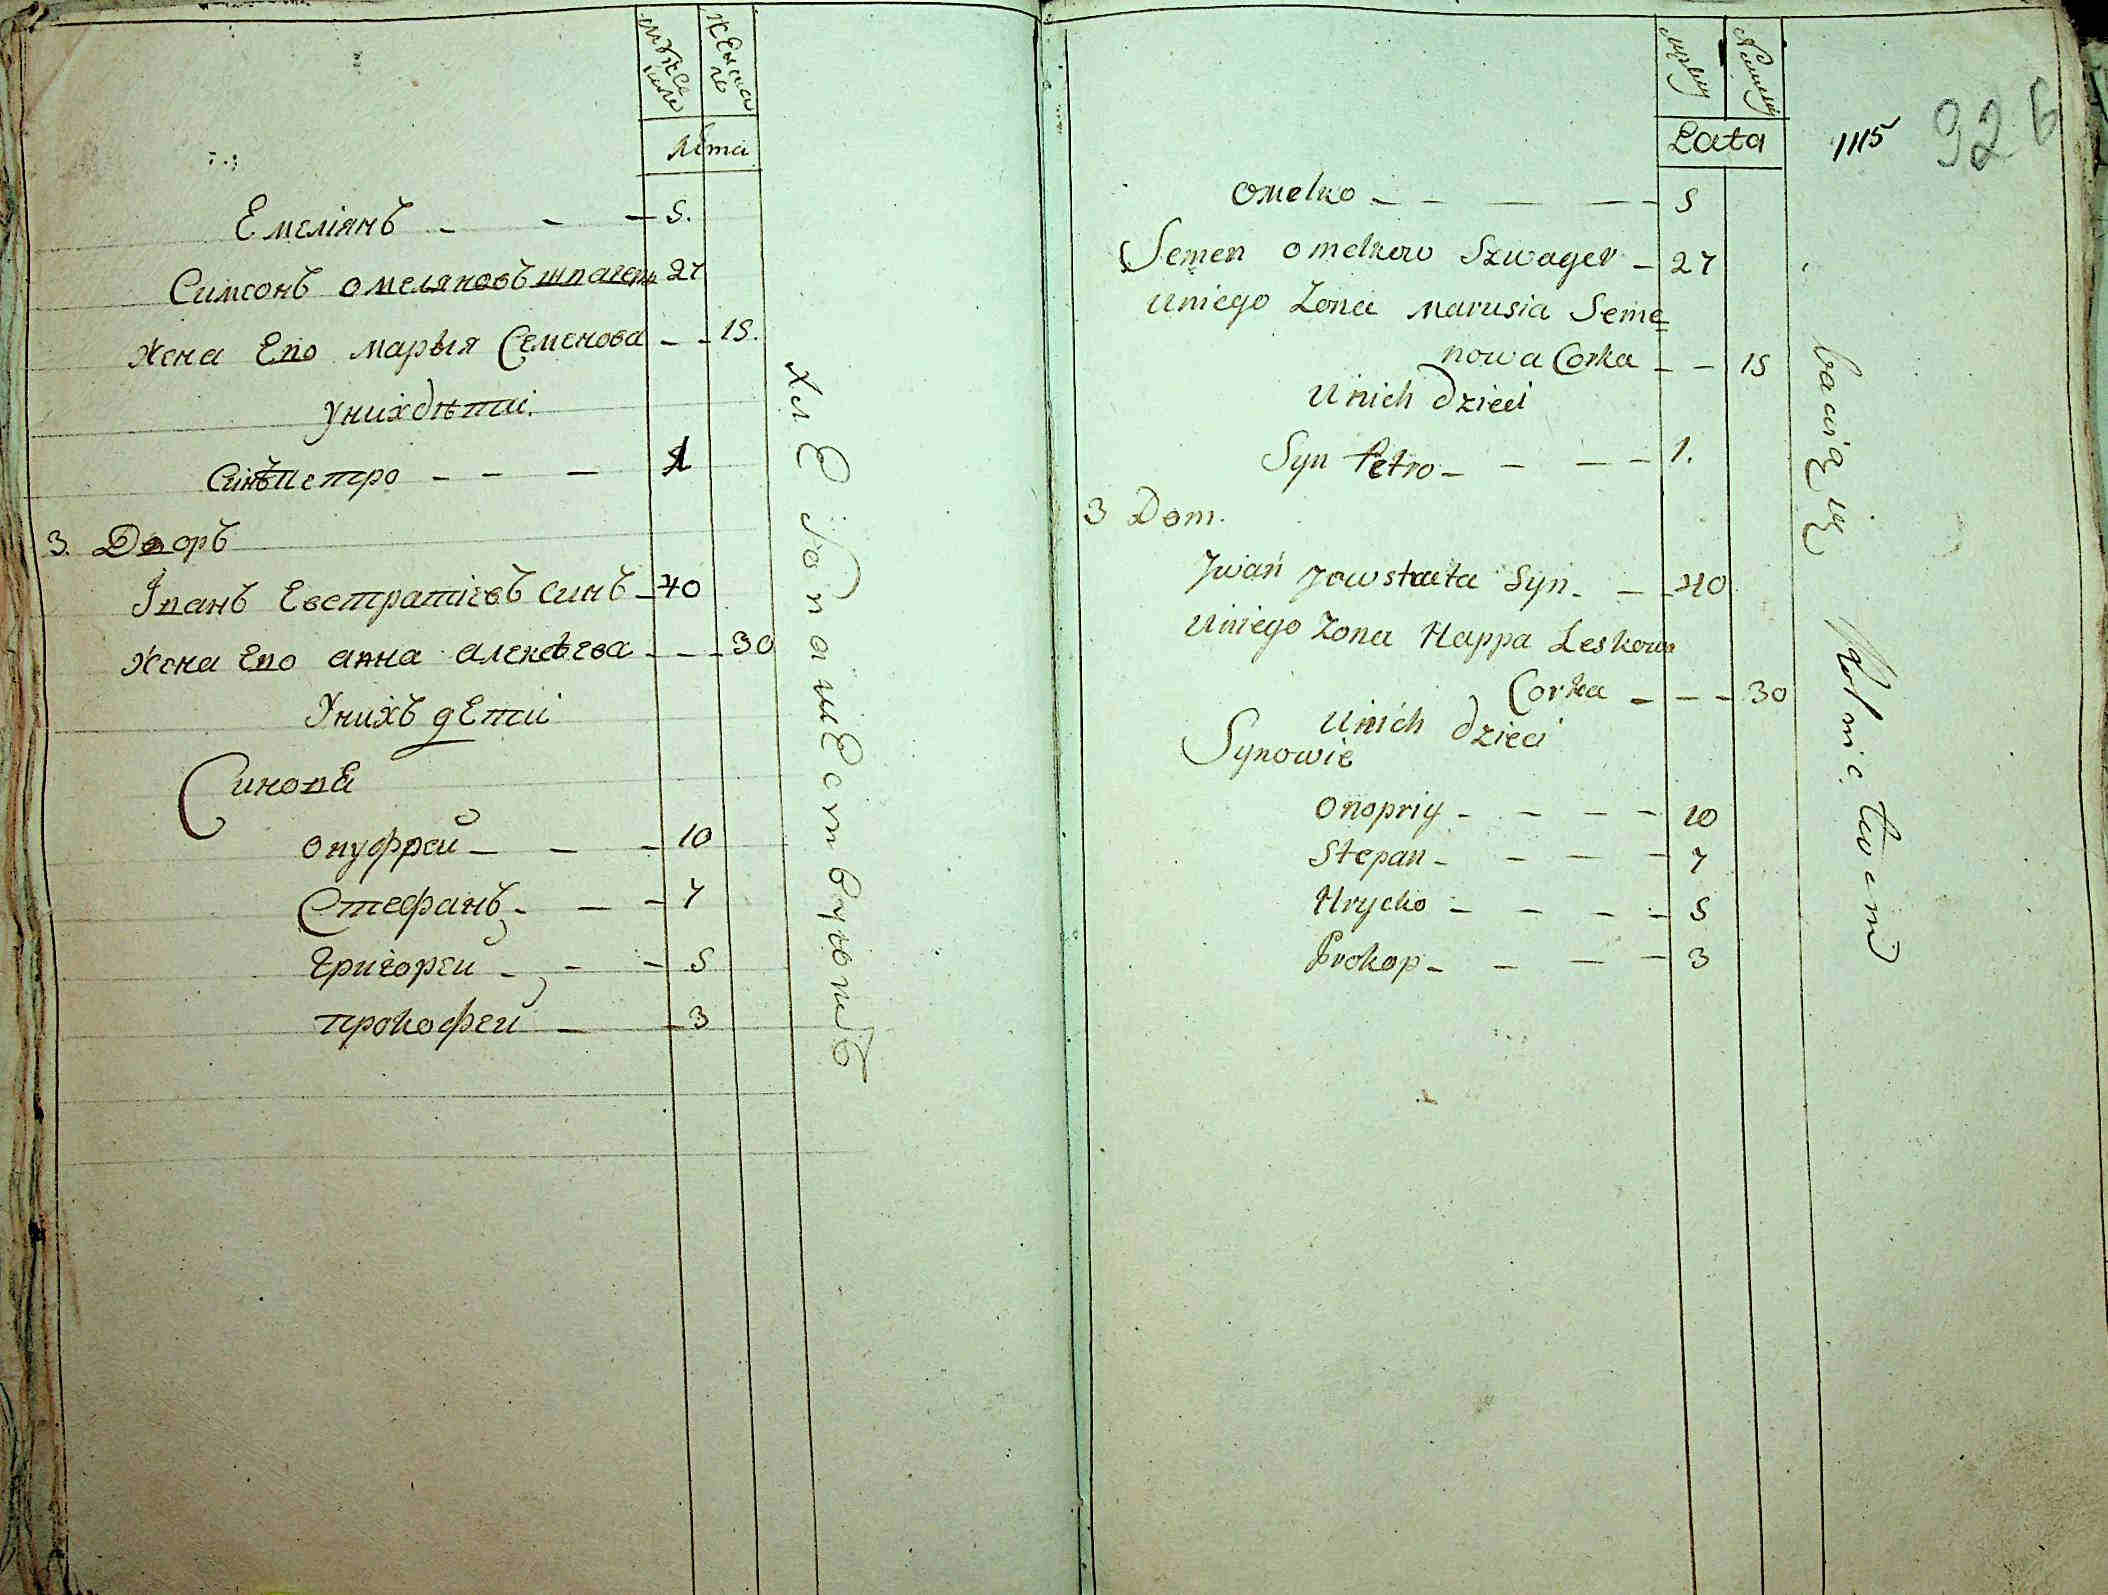 мужес
кие
женска
ѧ
лѣта
Емеліянъ - - - 5.
Симеонъ Омеляновъ шпагеръ 27
Жена Его Марыя Семенова - - 15.
у них дѣти.
Синъ Петро - - - 1
3. Дворъ
Іванъ Евстратіевъ синъ - 40
Жена Его Анна Алексѣева - - - 30
У нихъ дЕти
СиновЕ
Онуфрей - - - 10
Стефанъ - - - 7
Григорей - - - 5
Прокофей - - 3
хлЕбопашЕствуютъ
Lata
1115
926
Omelko - - - - - 5
Semen Omelkow Szwager - 27
U niego Zona Marusia Seme=
nowa Corka - - 15
U nich dzieci
Syn Petro - - - - 1.
3 Dom.
Jwań Jowstaita Syn. - - 40
U niego Zona Happa Leskowa
Corka - - - 30
U nich dzieci
Synowie
Onopriy - - - - 10
Stepan - - - - 7
Hrycko - - - - 5
Prokop - - - - 3
bawią się Rolnictwem